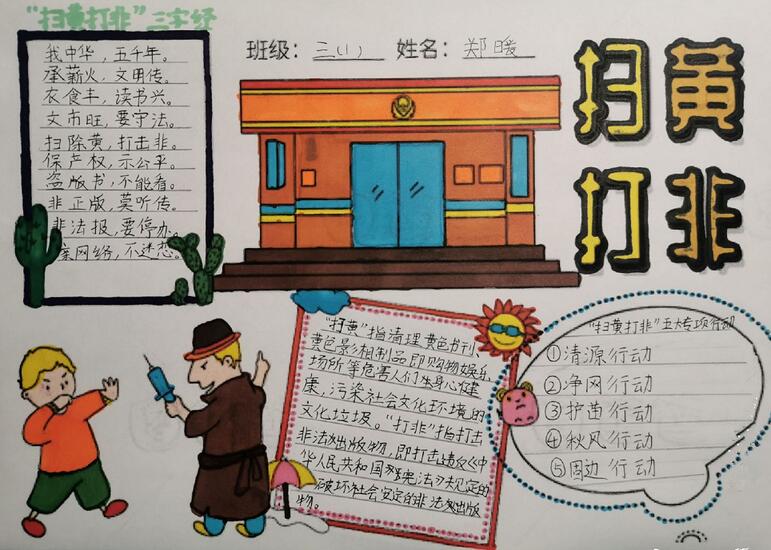 “扫黄打非”三字经
我中华，五千年。
承薪火，文明传。
衣食丰，读书兴。
文市旺，要守法。
扫除黄，打击非。
保产权，示公平。
盗版书，不能看。
非正版，莫听传。
非法报，要停办。
网络，不迷恋。
班级：三(1) 姓名：郑暖
扫黄
打非
“扫黄”指清理黄色书刊
黄色影相制品即购物娱乐
场所等危害人们生身心健
康，污染社会文化环境的
文化垃圾。“打非”指打击
非法出版物，即打击违反《中
华人民共和国宪法》规定的
破坏社会安定的非法出版
物。
“扫黄打非”五大专项行动
①清源行动
②净网行动
③护苗行动
④秋风行动
⑤固边行动